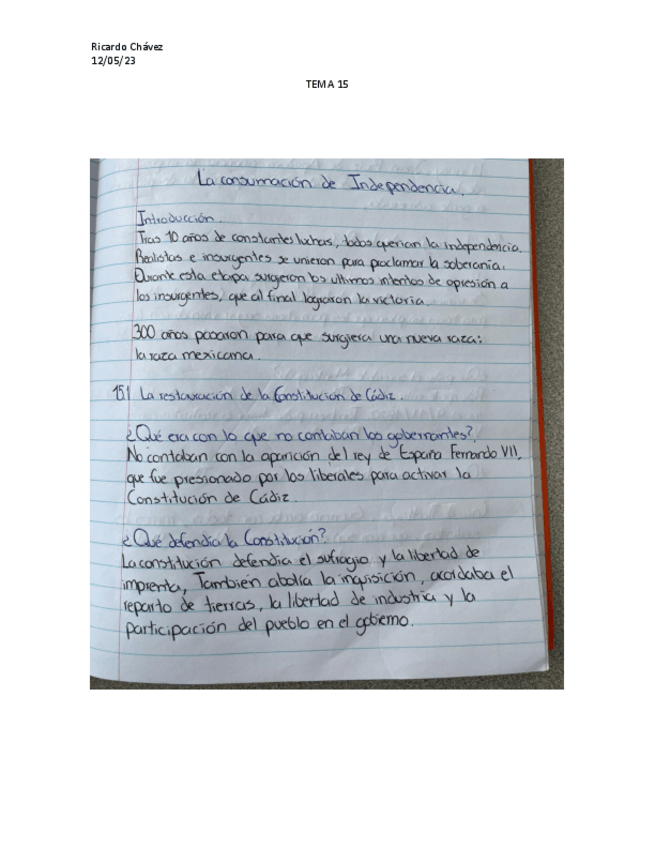 Ricardo Chávez
12/05/23
TEMA 15
La consumación de Independencia.
Introducción.
Tras 10 años de constantes luchas, todos querian la independencia.
Realistas e insurgentes se unieron para proclamar la soberanía.
Durante esta etapa surgeron los ultimos intentos de opresión a
los insurgentes, que al final lograron la victoria.
300 años pasaron para que surgiera una nueva raza:
la raza mexicana.
15.1 La restauración de la Constitución de Cádiz.
¿Qué era con lo que no contaban los gobernantes?
No contaban con la aparición del rey de España Fernando VII,
que fue presionado por los liberales para activar la
Constitución de Cádiz.
¿Qué defendía la Constitución?
La constitución defendía el sufragio y la libertad de
imprenta, También abolía la inquisición, acordaba el
reparto de tierras, la libertad de industria y la
participación del pueblo en el gobierno.